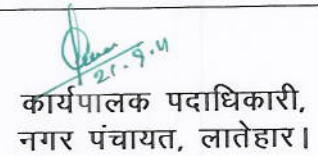 21.9.11
कार्यपालक पदाधिकारी,
नगर पंचायत, लातेहार।